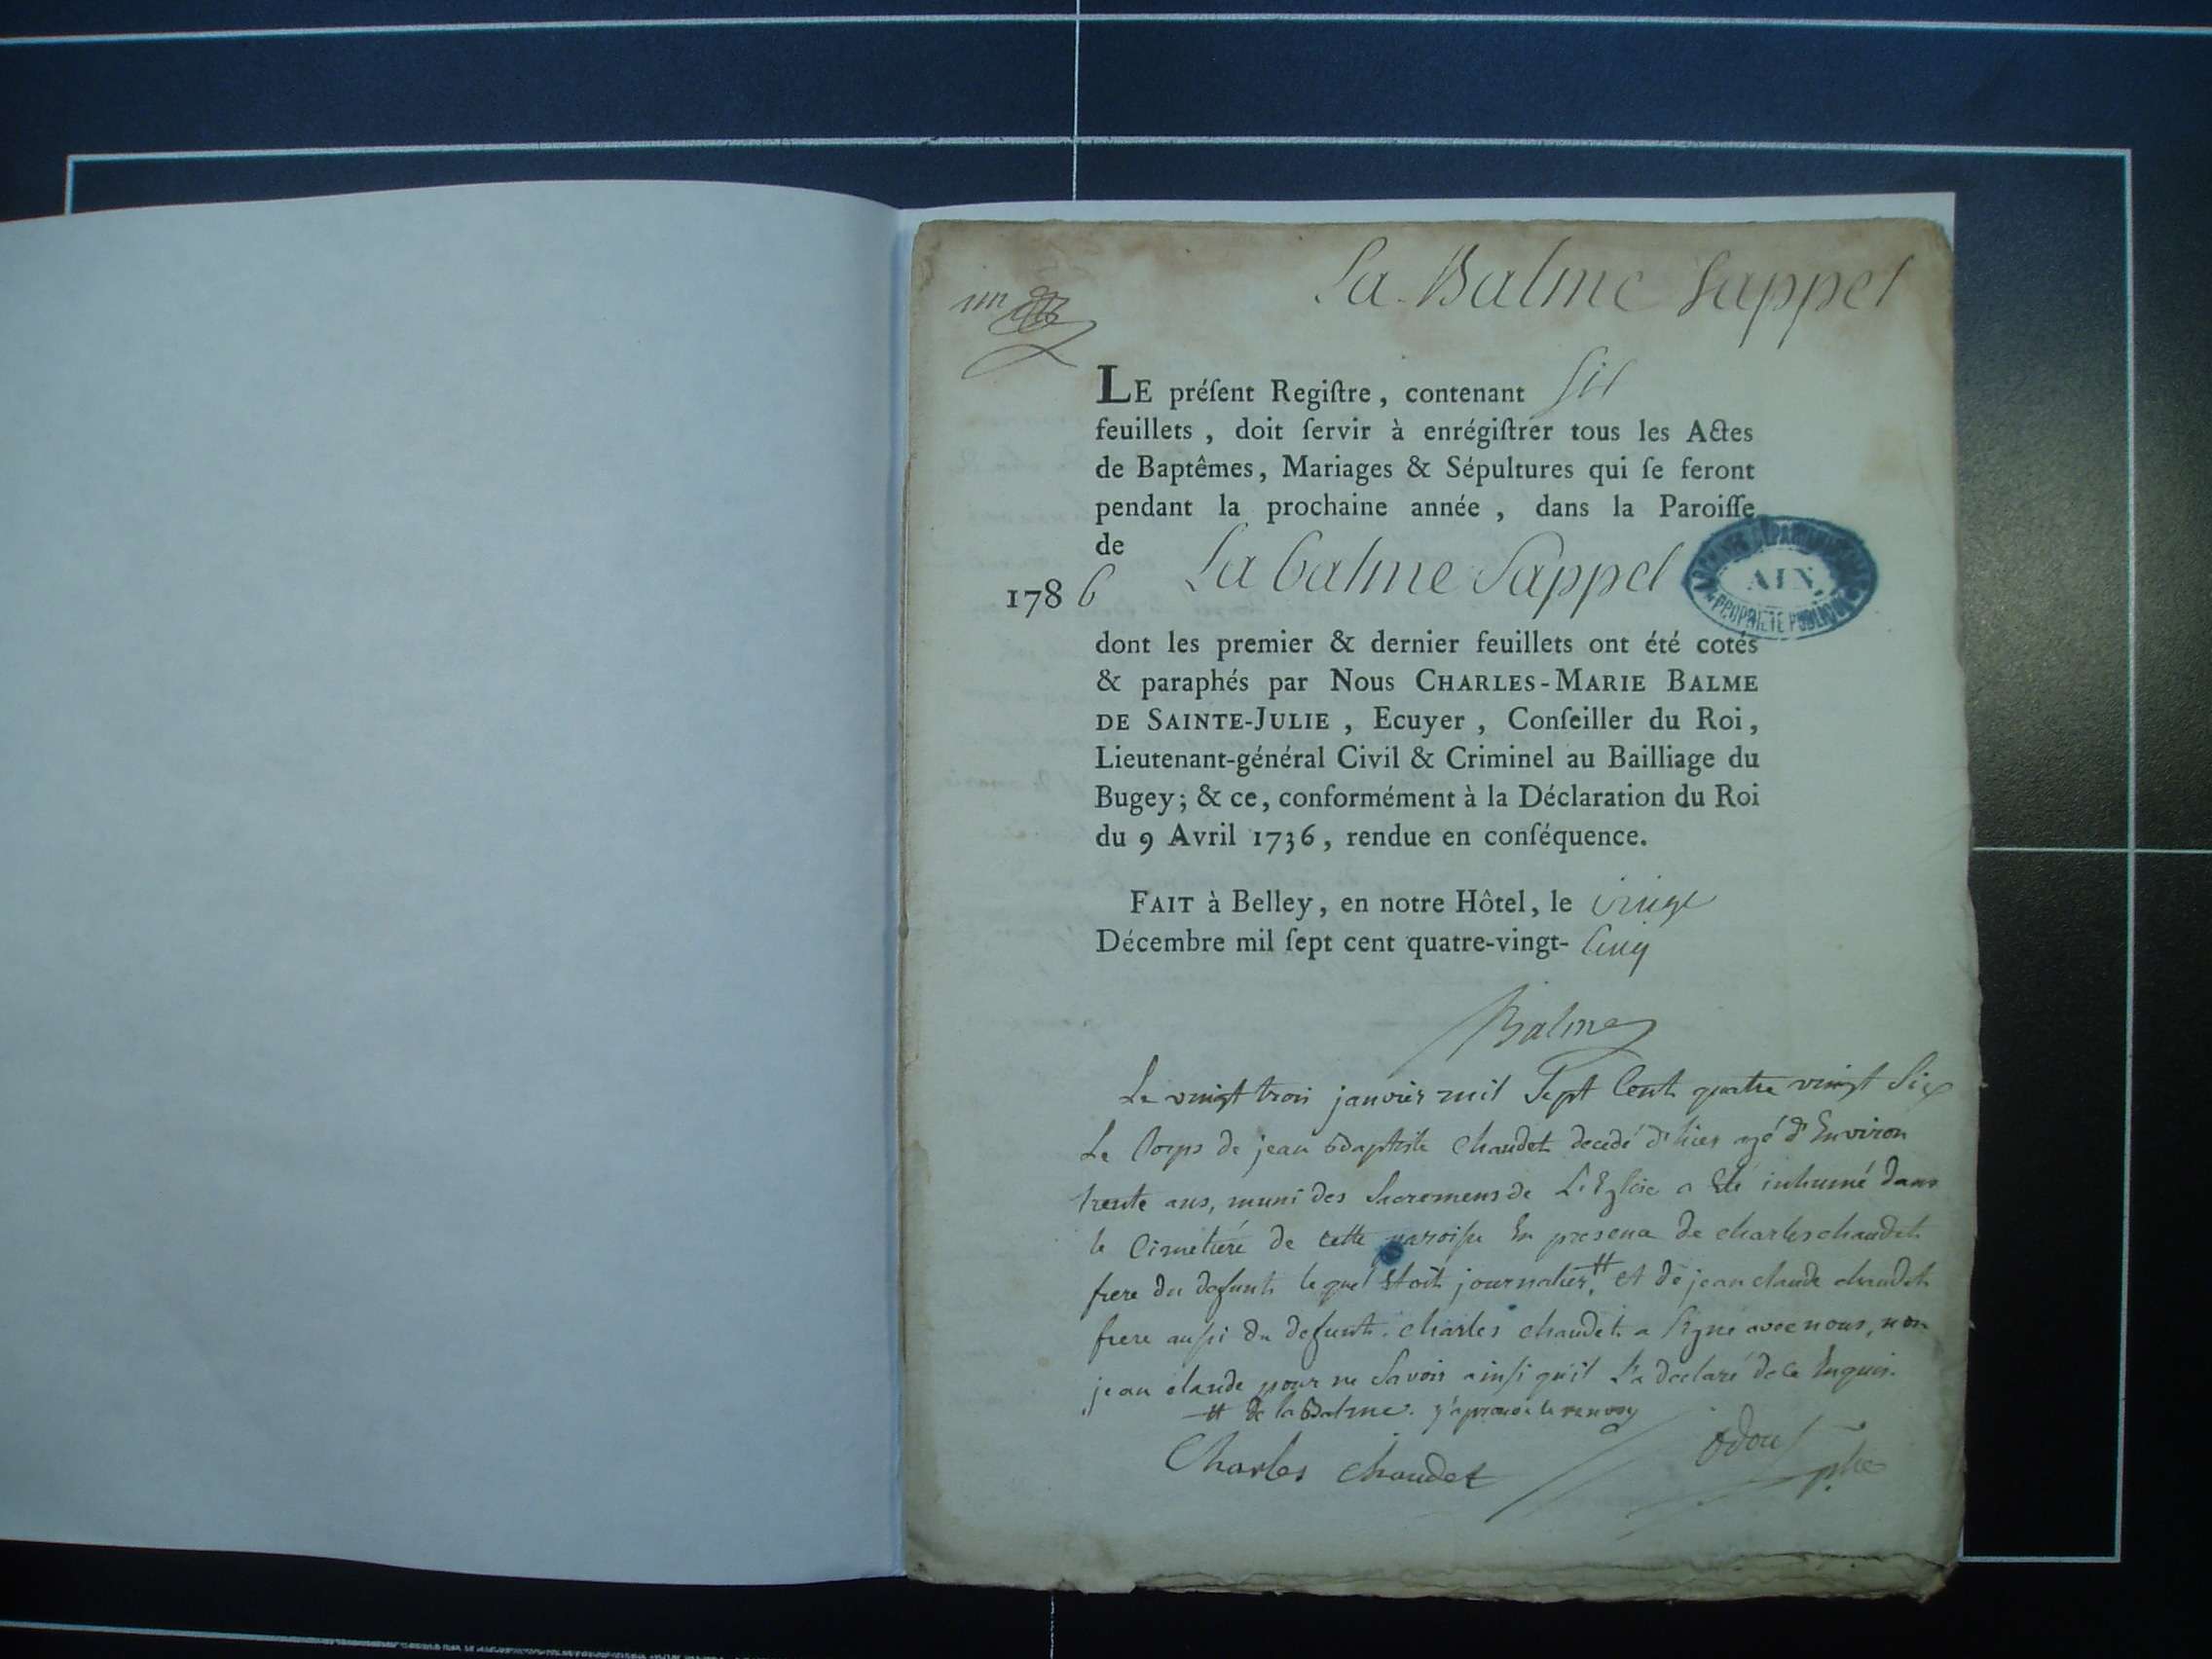 La Balme Sappel
LE préſent Regiſtre, contenant Six
feuillets, doit ſervir à enrégiſtrer tous les Actes
de Baptêmes, Mariages & Sépultures qui ſe feront
pendant la prochaine année, dans la Paroiſſe
de La balme Sappel
1786
ARCHIVES DEPARTEMENTALES
AIN
PROPRIETE PUBLIQUE
dont les premier & dernier feuillets ont été cotés
& paraphés par Nous CHARLES-MARIE BALME
DE SAINTE-JULIE, Ecuyer, Conſeiller du Roi,
Lieutenant-général Civil & Criminel au Bailliage du
Bugey; & ce, conformément à la Déclaration du Roi
du 9 Avril 1736, rendue en conſéquence.
FAIT à Belley, en notre Hôtel, le vingt
Décembre mil ſept cent quatre-vingt-Cinq
Balme
Le vingt trois janvier mil Sept Cent quatre vingt Six
Le Corps de jean Baptiste Chaudet decedé d'hier agé d'Environ
trente ans, muni des Sacremens de L'Eglise a Eté inhumé dans
le Cimetiére de cette paroiſse En presence de charles chaudet
frere du defunt lequel Etoit journalier, # et de jean claude chaudet
frere auſsi du defunt. charles chaudet a ſigné avec nous, non
jean claude pour ne Savoir ainſi qu'il L'a declaré de ce Enquis.
# de la Balme. j'aprouve le renvoy
Charles chaudet